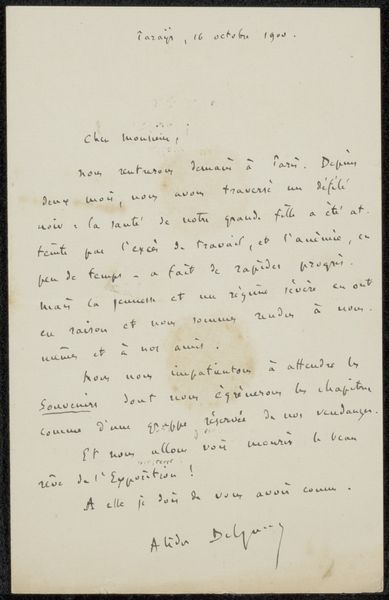 16 octobre 1900.
Cher Monsieur,
nous rentrerons demain à Paris. Depuis
deux mois, nous avons traversé un défilé
noir : la santé de notre grande fille a été at-
teinte par l'excès de travail, et l'anémie, en
peu de temps a fait de rapides progrès.
Mais la jeunesse et un régime sévère en ont
eu raison et nous sommes rendus à nous-
mêmes et à nos amis.
Nous nous impatientons à attendre les
Souvenirs dont nous égrènerons les chapitres
comme d'une grappe réservée de nos vendanges.
Et nous allons voir mourir le beau
rêve de l'Exposition !
A elle je dois de vous avoir connu.